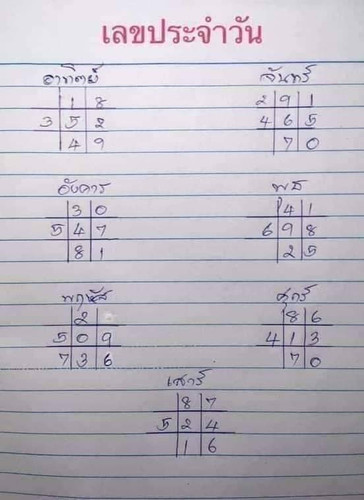 เลขประจำวัน
อาทิตย์ จันทร์
1 8 2 9 1
3 5 2 4 6 5
4 9 7 0
อังคาร พุธ
3 0 4 1
5 4 7 6 9 8
8 1 2 5
พฤหัส ศุกร์
2 8 6
5 0 9 4 1 3
7 3 6 7 0
เสาร์
8 7
5 2 4
1 6